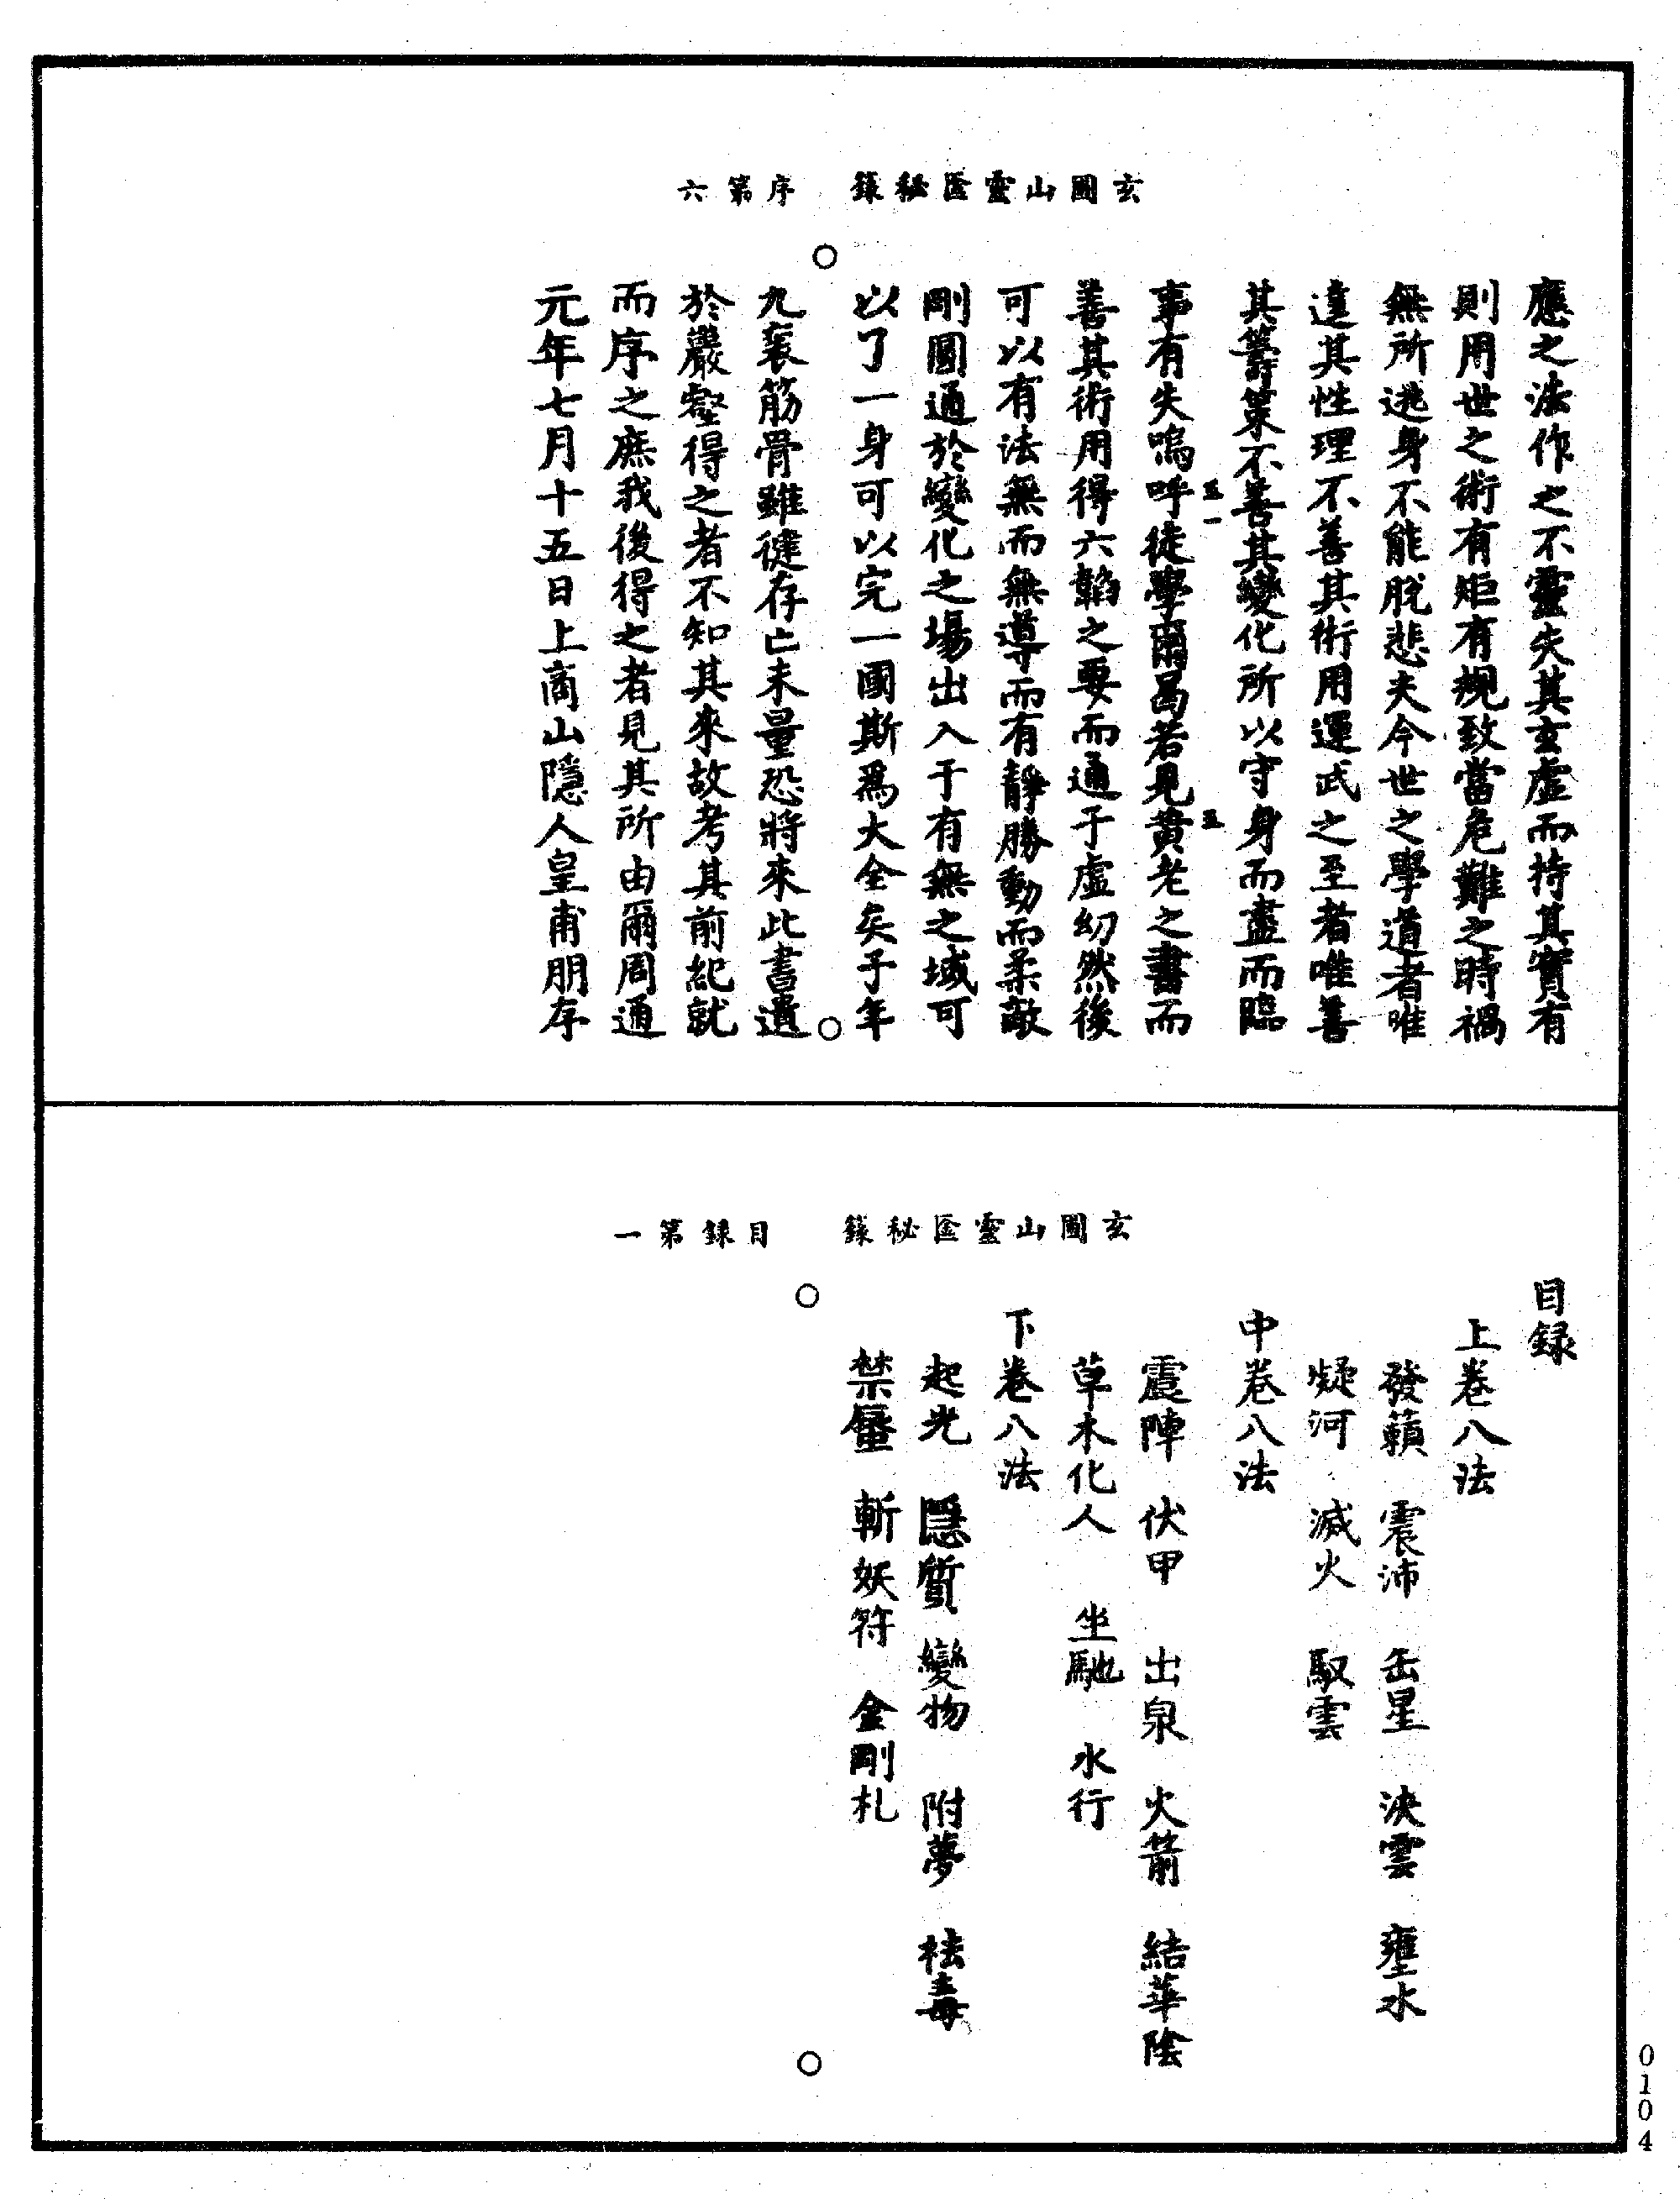 玄圃山靈匱秘籙　序第六
應之法作之不靈失其玄虛而持其實有
則用世之術有矩有規致當危難之時禍
無所逃身不能脫悲夫今世之學道者唯
達其性理不善其術用運武之至者唯善
其籌策不善其變化所以守身而盡而臨
事有失嗚呼徒學爾曷若見黃老之書而
善其術用得六韜之要而通于虛幻然後
可以有法無而無導而有靜勝動而柔敵
剛圓通於變化之場出入于有無之域可
以了一身可以完一國斯爲大全矣予年
九袠筋骨雖健存亡未量恐將來此書遺
於巖壑得之者不知其來故考其前紀就
而序之庶我後得之者見其所由爾周通
元年七月十五日上商山隱人皇甫朋存
玄圃山靈匱秘籙　目録第一
目録
上卷八法
發籟　震沛　缶星　泱雲　壅水
凝河　滅火　馭雲
中卷八法
震陣　伏甲　出泉　火箭　結華陰
草木化人　坐馳　水行
下卷八法
起光　隱質　變物　附夢　祛毒
禁蜃　斬妖符　金剛札
0104